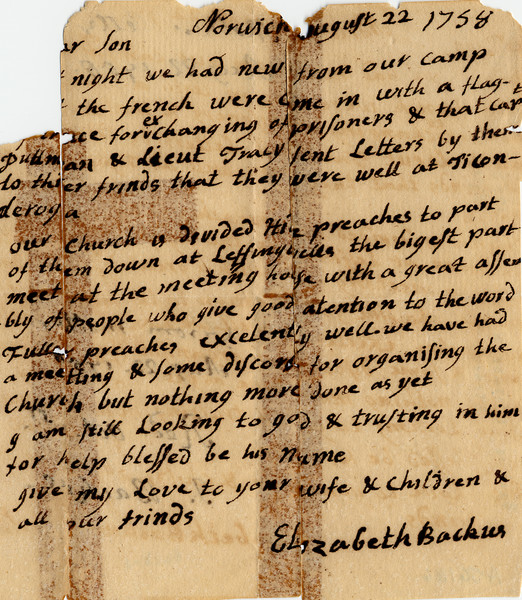 Norwich august 22 1758
ar Son
night we had news from our camp
the french were come in with a flag-
for exchanging of prisoners & that capt
putman & Lieut Tracy sent Letters by them
to ther frinds that they were well at Ticon-
deroga
our Church is divided Hide preaches to part
of them down at Leffingwells the bigest part
meet at the meeting house with a great assem
bly of people who give good atention to the word
Fuller preaches excelently well. we have had
a meetting & some discors for organising the
Church but nothing more done as yet
y am still Looking to god & trusting in him
for help blessed be his name
give my Love to your wife & Children &
all our frinds
Elizabeth Backus